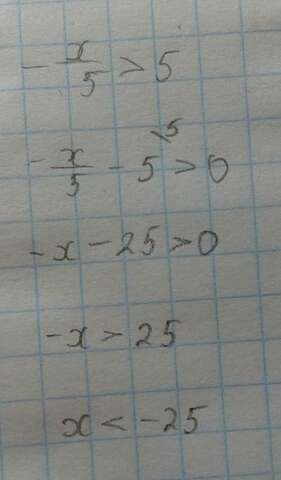 -x/5 > 5
-x/5 - 5^{\5} > 0
-x - 25 > 0
-x > 25
x < -25